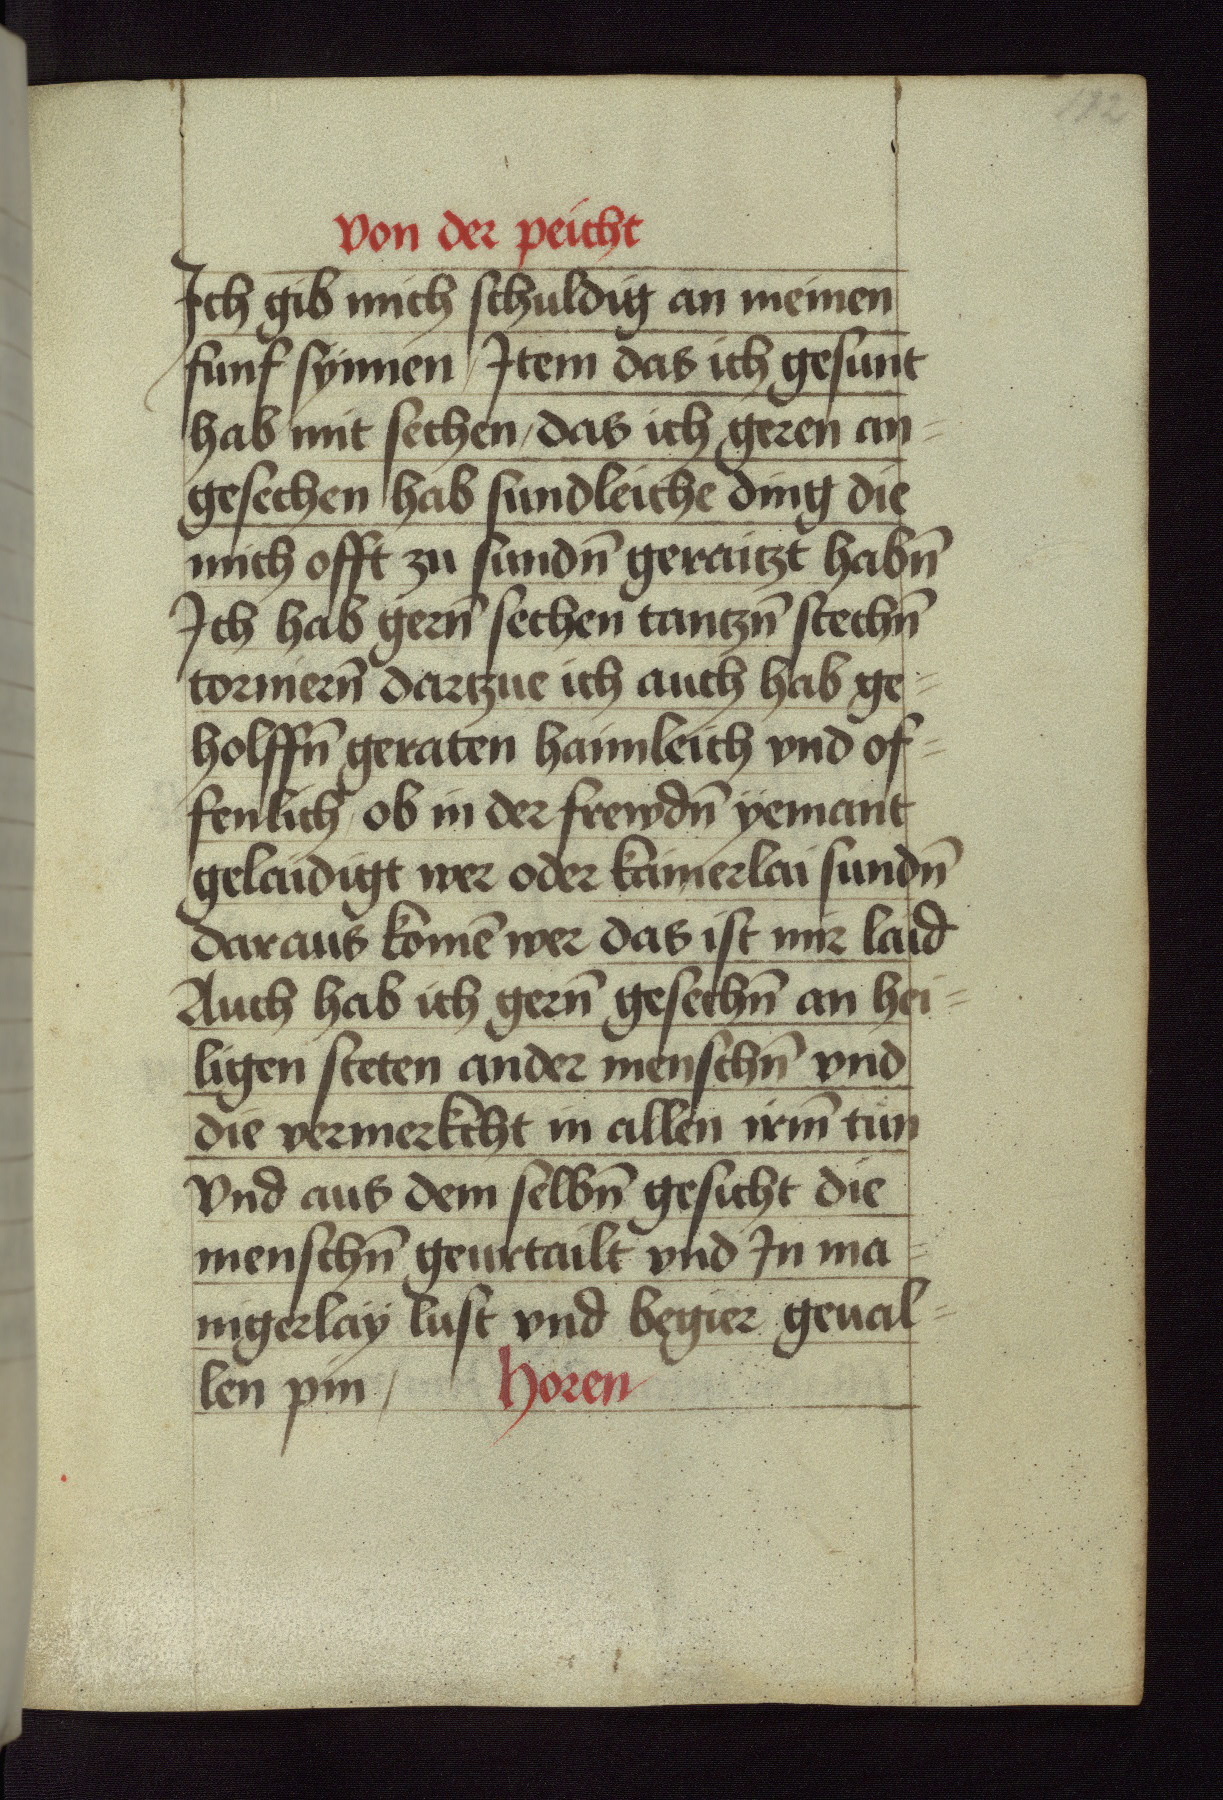 132
Von der peicht
Ich gib mich schuldig an meinen
funf synnen / Item das ich gesunt
hab mit sechen / das ich geren an=
gesechen hab sundleiche ding die
mich offt zu sundn̄ geraitzt habn̄
Ich hab gern̄ sechen tantzn̄ stechn̄
torniern̄ dartzue ich auch hab ge=
holffn̄ geraten haimleich vnd of=
fenlich / ob in der frewdn̄ ÿemant
gelaidigt wer oder kainerlai sundn̄
daraus komē wer das ist mir laid
Auch hab ich gern̄ gesechn̄ an hei=
ligen steten ander menschn̄ vnd
die vermerkcht in allen irm̄ tun
Vnd aus dem selbn̄ gesicht die
menschn̄ geurtailt vnd In ma=
nigerlaÿ lust vnd begier geual=
len pin / Horen